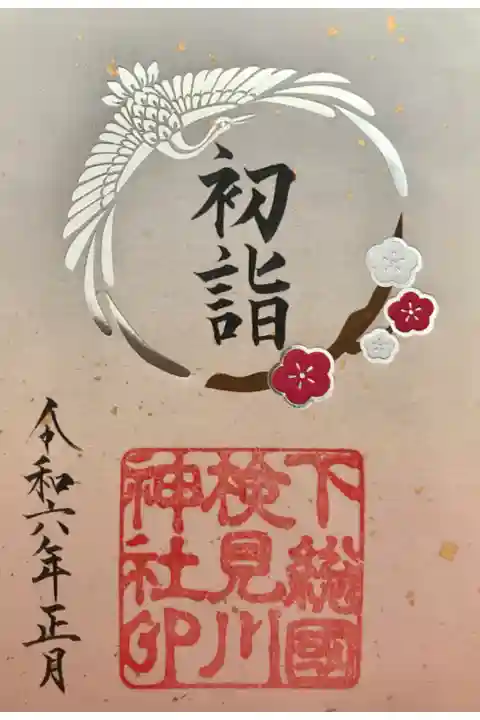 初詣
下総國
検見川
神社印
令和六年正月